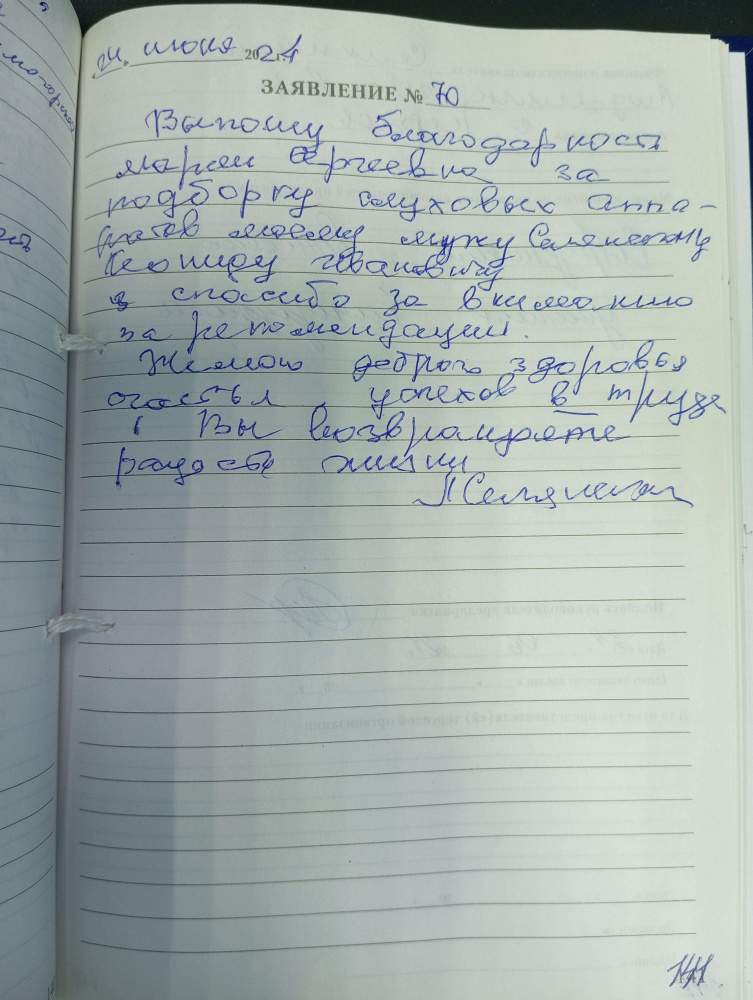 24 июня 2021
ЗАЯВЛЕНИЕ № 70
Выношу благодарность
Марии Сергеевна за
подборку слуховых аппа-
ратов моему мужу
Леониду Ивановичу
и спасибо за внимание
за рекомендации.
Желаю доброго здоровья
счастья успехов в труде
Вы возвращаете
радость жизни